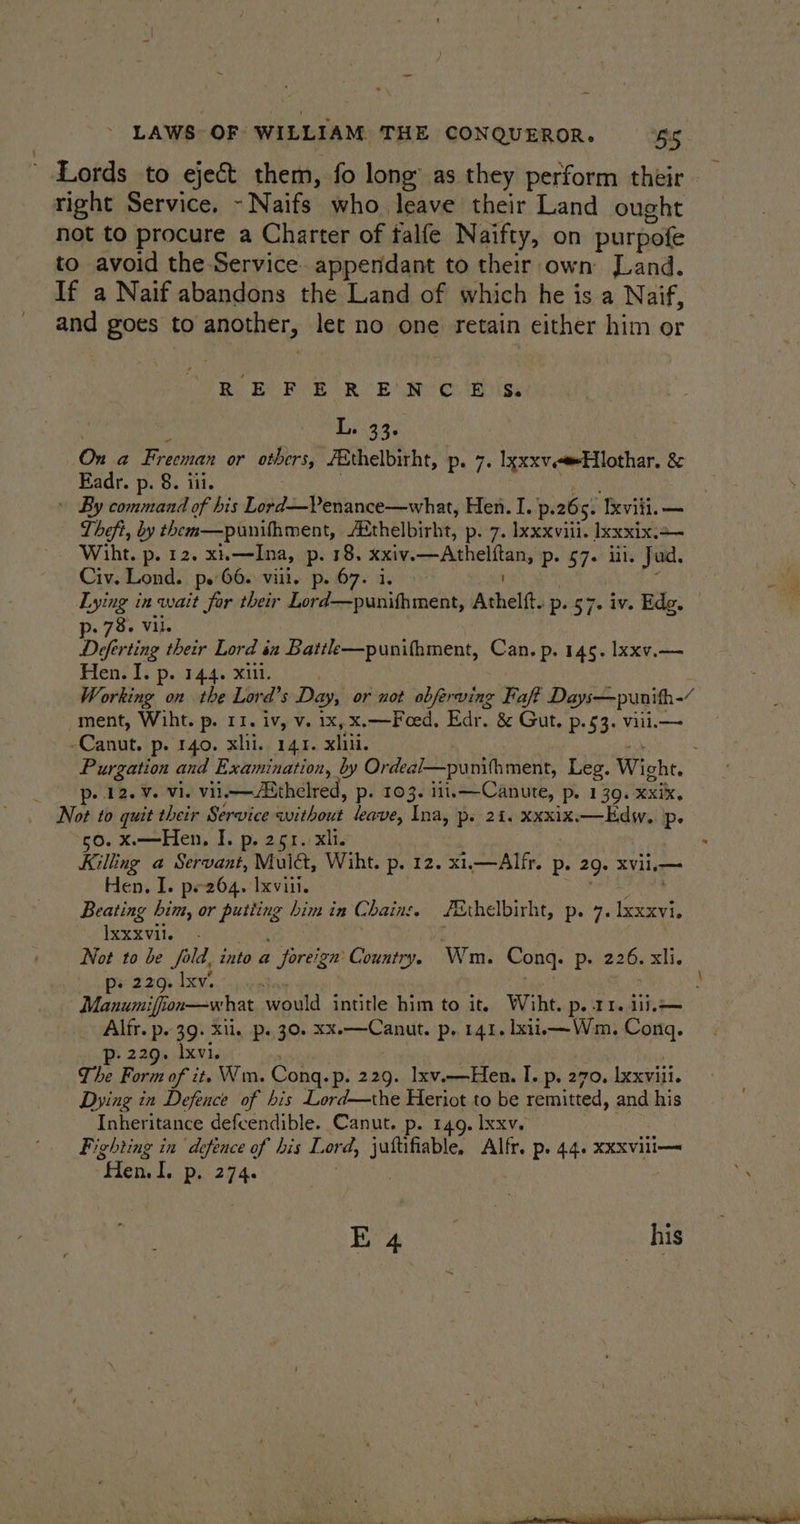 LAWS OF WILLIAM THE CONQUEROR. 55
Lords to eject them, ſo long as they perform their
right Service. Naifs who leave their Land ought
not to procure a Charter of falſe Naifty, on purpoſe
to avoid the Service appendant to their own Land.
If a Naif abandons the Land of which he is a Naif,
and goes to another, let no one retain either him or
REFERENCES.
L. 33.
On a Freeman or others, Æthelbirht, p. 7. lxxxv.—Hlothar. &
Eadr. p. 8. iii.
By command of his Lord—Penance—what, Hen. I. p.265. lxviii.—
Theft, by them—puniſhment, Æthelbirht, p. 7. lxxxviii. lxxxix.—
Wiht. p. 12. xi.—Ina, p. 18. xxiv.—Athelſtan, p. 57. iii. Jud.
Civ. Lond. p. 66. viii. p. 67. i.
Lying in wait for their Lord—puniſhment, Athelſt. p. 57. iv. Edg.
p. 78. vii.
Deſerting their Lord in Battle—puniſhment, Can. p. 145. lxxv.—
Hen. I. p. 144. xiii.
Working on the Lord's Day, or not obſerving Faſt Days—puniſh-
ment, Wiht. p. 11. iv, v. ix, x.—Fœd. Edr. & Gut. p.53. viii.—
Canut. p. 140. xlii. 141. xliii.
Purgation and Examination, by Ordeal—puniſhment, Leg. Wight.
p. 12. v. vi. vii.—Æthelred, p. 103. iii.—Canute, p. 139. xxix.
Not to quit their Service without leave, Ina, p. 21. xxxix.—Edw. p.
50. x.—Hen. I. p. 251. xli.
Killing a Servant, Mulct, Wiht. p. 12. xi.—Alfr. p. 29. xvii.—
Hen. I. p. 264. lxviii.
Beating him, or putting him in Chains. Æthelbirht, p. 7. lxxxvi.
lxxxvii.
Not to be ſold, into a foreign Country. Wm. Conq. p. 226. xli.
p. 229. lxv.
Manumiſſion—what would intitle him to it. Wiht. p. 11. iii.—
Alfr. p. 39. xii. p. 30. xx.—Canut. p. 141. lxii.—Wm. Conq.
p. 229. lxvi.
The Form of it. Wm. Conq. p. 229. lxv.—Hen. I. p. 270. lxxviii.
Dying in Defence of his Lord—the Heriot to be remitted, and his
Inheritance deſcendible. Canut. p. 149. lxxv.
Fighting in defence of his Lord, juſtifiable. Alfr. p. 44. xxxviii—
Hen. I. p. 274.
E 4 his